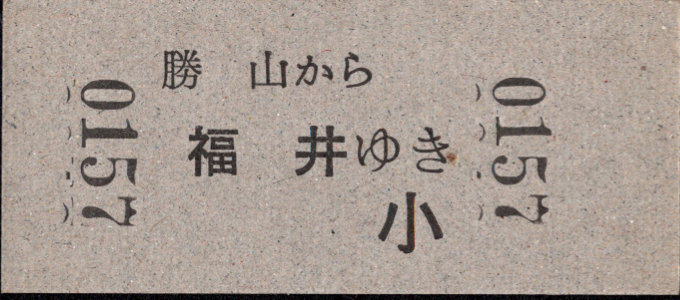 勝 山から
福 井ゆき
小
0157
0157